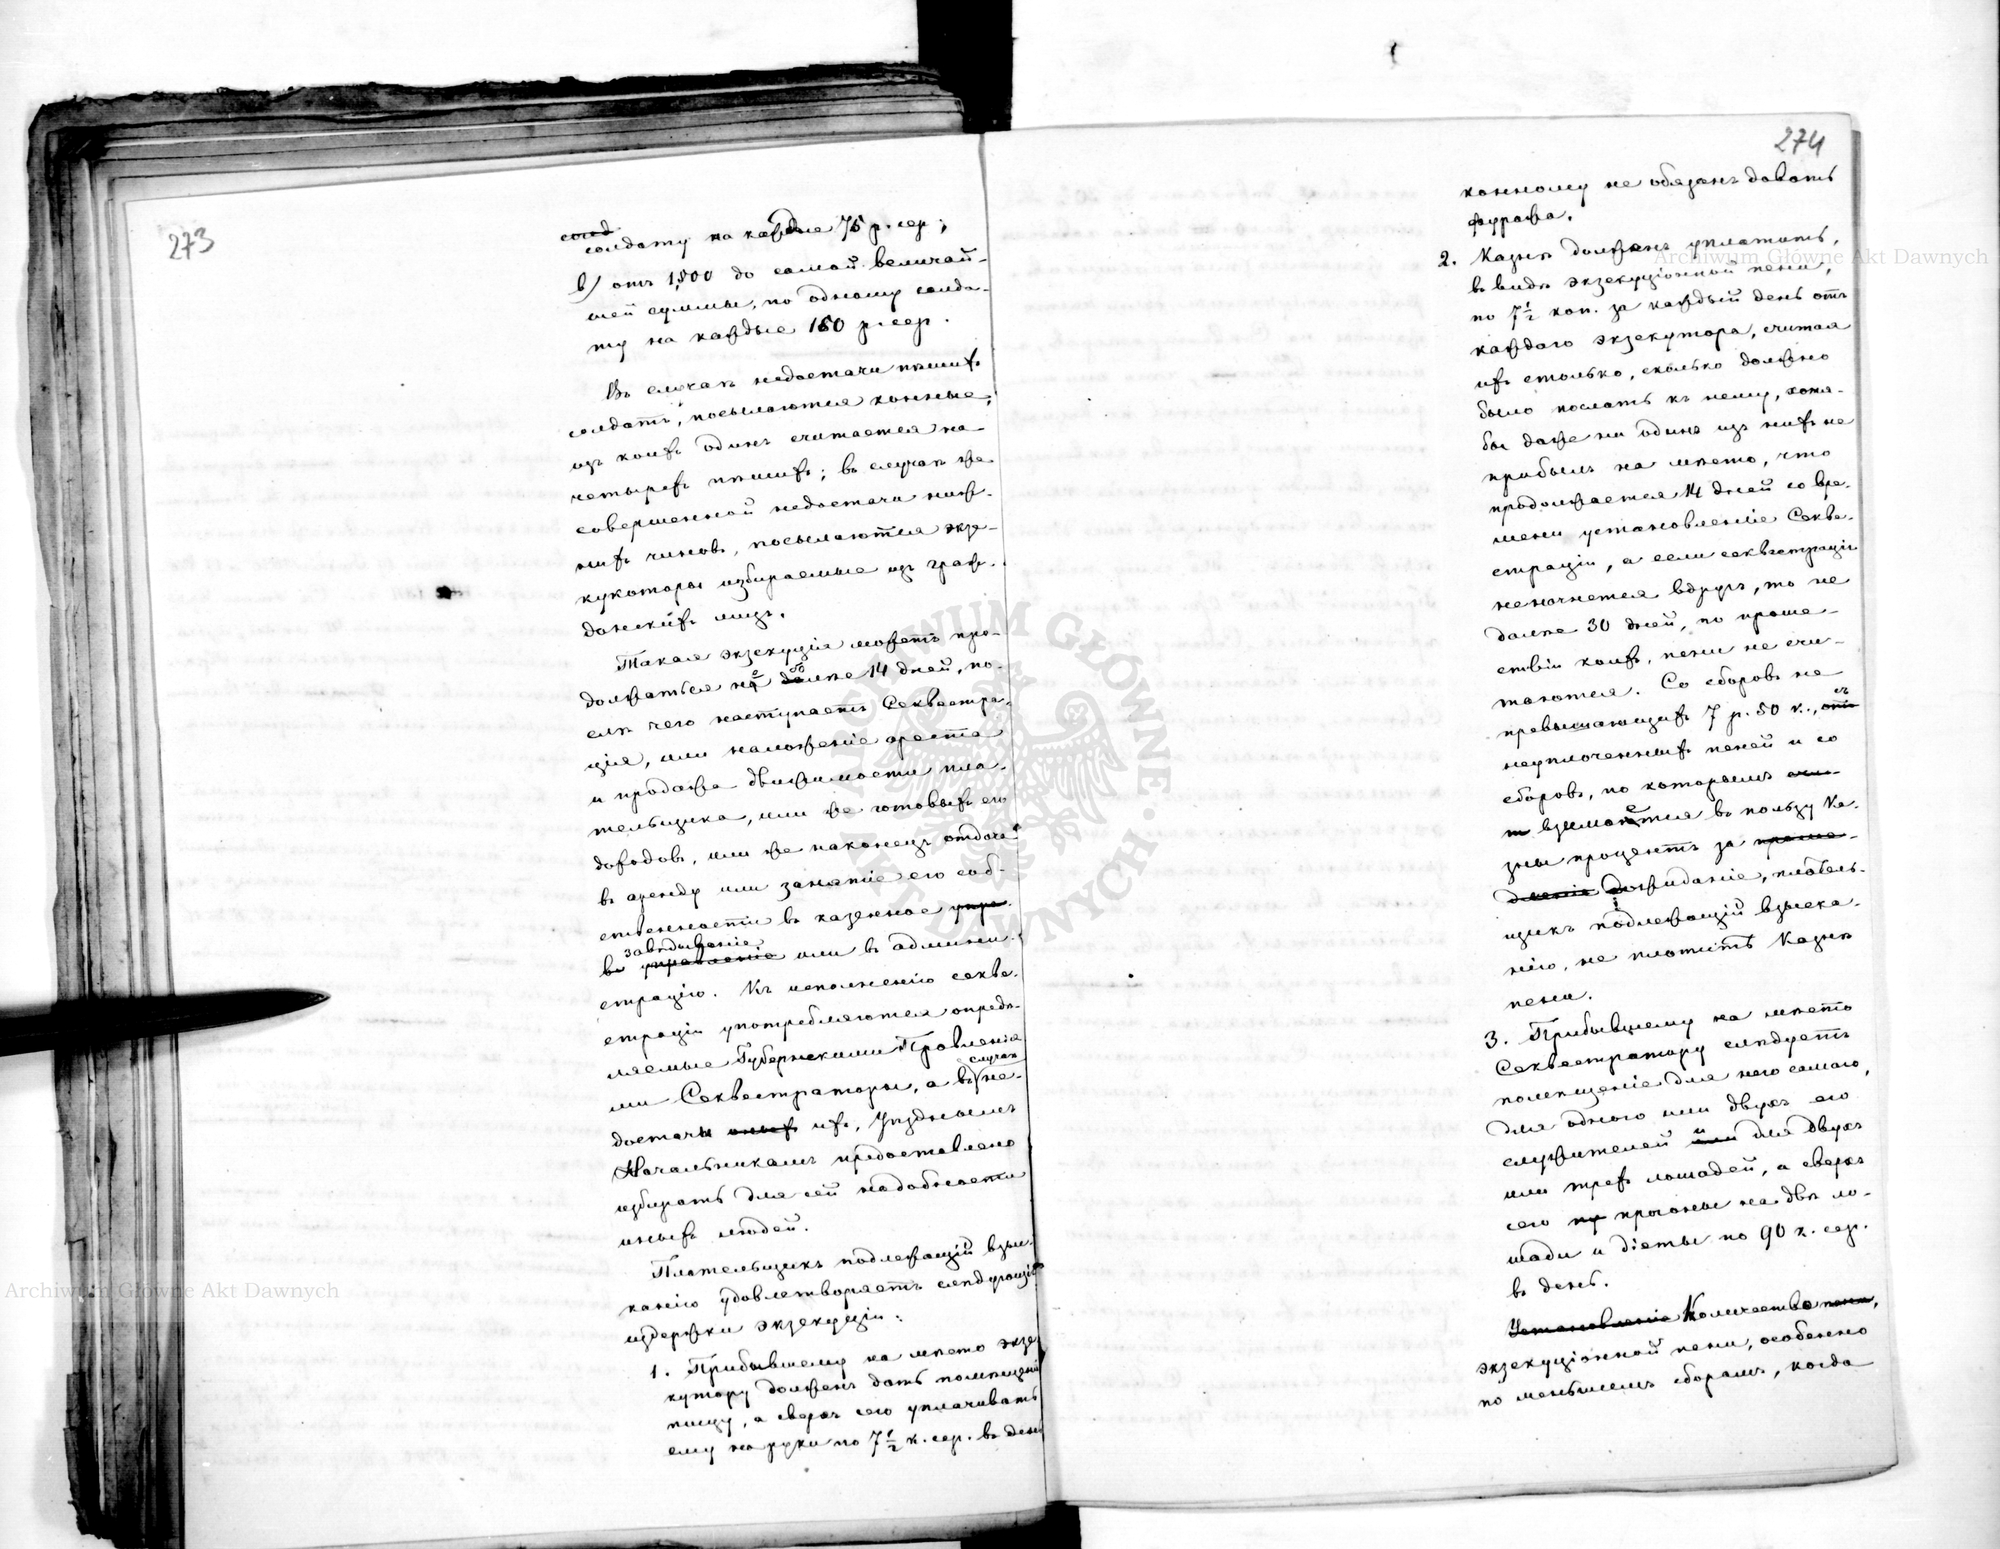 273
солдату на каждые 75 р. сер.;
в) отъ 1,500 до самой величай-
шей суммы, по одному солда-
ту на каждые 150 р. сер.
Въ случаѣ недостачи пѣшихъ
солдатъ, посылаются конные,
изъ коихъ одинъ считается за
четырехъ пѣшихъ; въ случаѣ же
совершенной недостачи ниж-
нихъ чиновъ, посылаются экзе-
кукоторы избираемые изъ граж-
данскихъ лицъ.
Такая экзекуція можетъ про-
должаться не долѣе 14 дней, по-
слѣ чего наступаетъ Секвестра-
ція, или наложеніе ареста
и продажа движимости пла-
тельщика, или же готовыхъ его
доходовъ, или же наконецъ отдача
въ аренду или занятіе его соб-
ственности въ казенное упра-
завѣдываніе
въ управленіе или въ админи-
страцію. Къ исполненію секве-
страціи употребляются опредѣ-
ляемые Губернскими Правленія-
случаѣ
ми Секвестраторы, а въ не-
достачи оныхъ ихъ, Уѣзднымъ
Начальникамъ предоставлено
избирать для сей надобности
иныхъ людей.
Плательщикъ подлежащій взы-
канію удовлетворяетъ слѣдующія
издержки экзекуціи:
1. Прибывшему на мѣсто экзе-
кутору долженъ дать помѣщеніе
пищу, а сверхъ сего уплачивать
ему на руки по 7½ к. сер. въ день
274
конному не обязанъ давать
фуража.
2. Казнѣ долженъ уплатить,
въ видѣ экзекуціонной пени,
по 7½ коп. за каждый день отъ
каждаго экзекутора, считая
ихъ столько, сколько должно
было послать къ нему, хотя-
бы даже ни одинъ изъ нихъ не
прибылъ на мѣсто, что
продолжается 14 дней со вре-
мени установленія Секве-
страціи, а если секвестрація
не начнется вдругъ, то не
далѣе 30 дней, по проше-
ствіи коихъ, пени не счи-
таются. Со сборовъ не
превышающихъ 7 р. 50 к., отъ
съ
неуплоченныхъ пеней и со
сборовъ, по которымъ
взимается въ пользу Ка-
зны процентъ за
дожиданіе, платель-
щикъ подлежащій взыска-
нію, не платитъ Казнѣ
пени.
3. Прибывшему на мѣсто
Секвестратору слѣдуетъ
помѣщеніе для него самого,
для одного или двухъ его
служителей и для двухъ
или трехъ лошадей, а сверхъ
сего прогоны на двѣ ло-
шади и діеты по 90 к. сер.
въ день.
Установленіе Количество пени,
экзекуціонной пени, особенно
по меньшимъ сборамъ, когда
Archiwum Główne Akt Dawnych
Archiwum Główne Akt Dawnych
ARCHIWUM GŁÓWNE AKT DAWNYCH